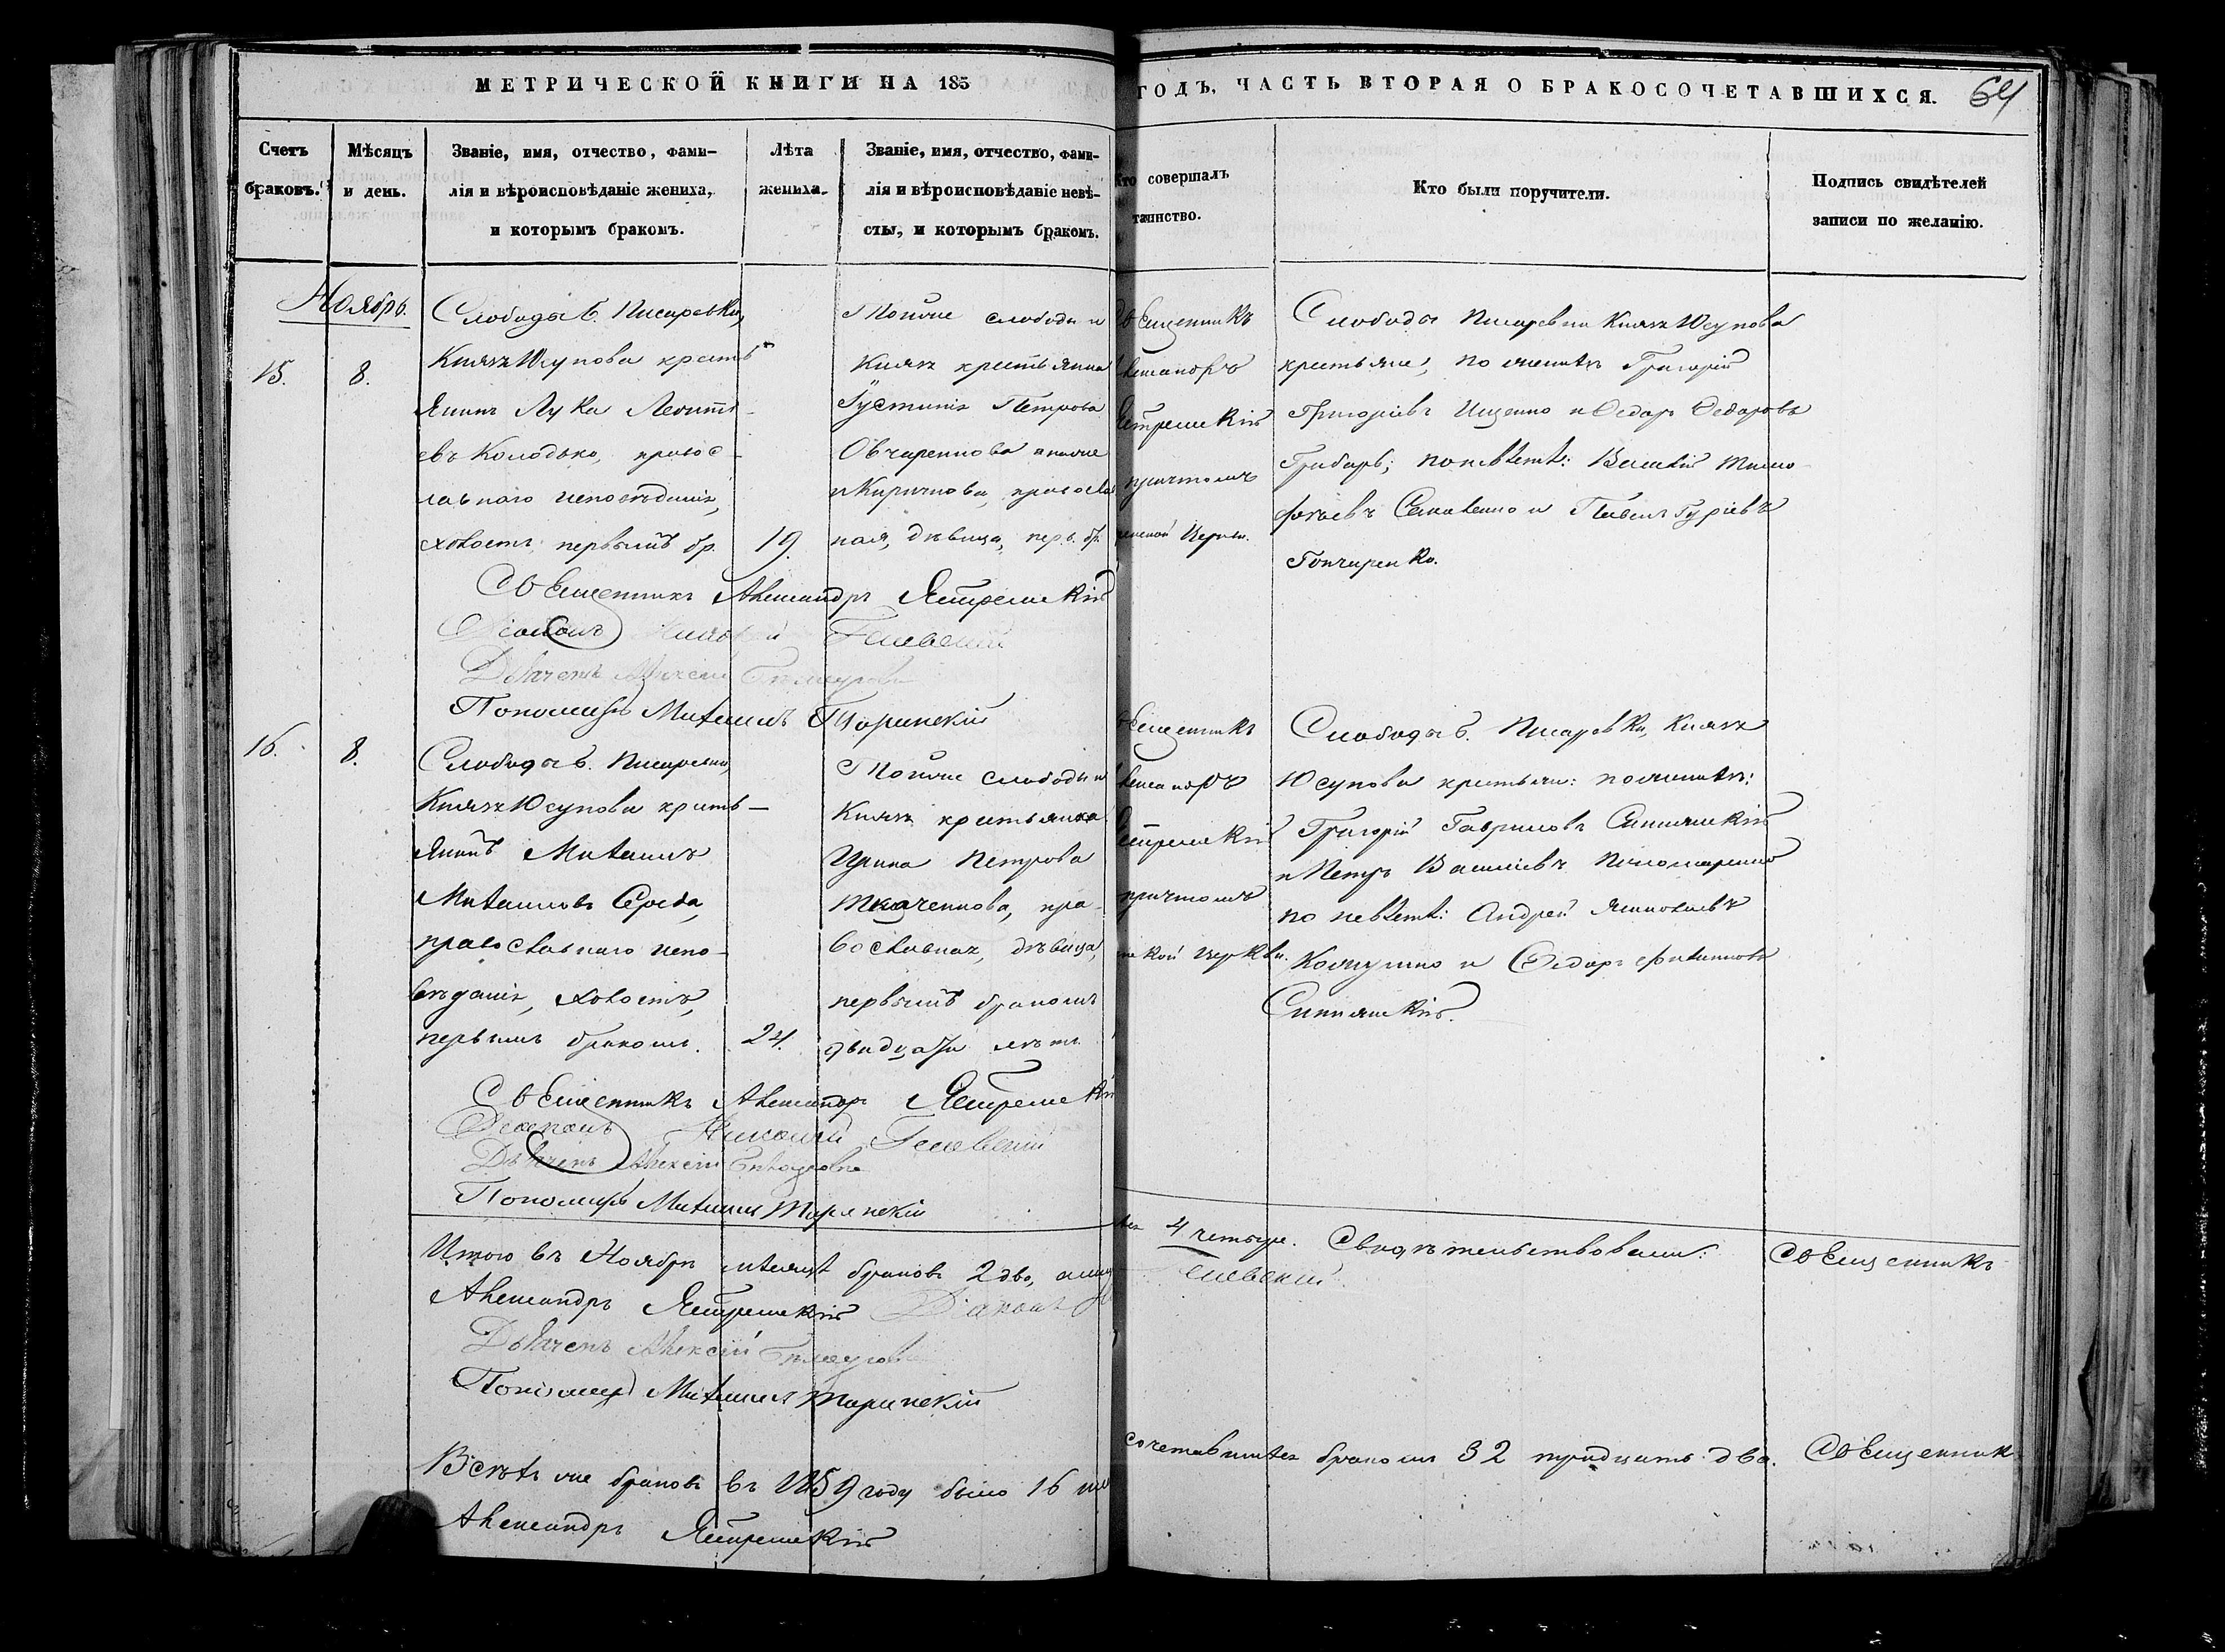 МЕТРИЧЕСКОЙ КНИГИ НА 185
ГОДЪ, ЧАСТЬ ВТОРАЯ О БРАКОСОЧЕТАВШИХСЯ.
64
Счетъ браковъ.
Мѣсяцъ и день.
Званіе, имя, отчество, фами-
лія и вѣроисповѣданіе жениха,
и которымъ бракомъ.
Лѣта жениха.
Званіе, имя, отчество, фами-
лія и вѣроисповѣданіе невѣ-
сты, и которымъ бракомъ.
Кто совершалъ
таинство.
Кто были поручители.
Подпись свидѣтелей
записи по желанію.
Ноябрь.
15.
8.
Слободы б. Писаревки,
Князя Юсупова кресть-
янинъ Лука Леонтi-
евъ Колодько, правос-
лавнаго исповѣданія,
холостъ, первымъ бр.
19.
Тойже слободы и
Князя крестьянка
Іустинія Петрова
Овчаренкова
и Киричкова, православ
ная, дѣвица, перв. бр.
Священникъ
Ястремскій
причтомъ
Церкви.
Слободы Писаревки Князя Юсупова
крестьяне, по женихѣ Григорій
Григоріевъ Ищенко и Ѳедоръ Ѳедоровъ
Грибарь; по невѣстѣ: Василій Тимо
фѣевъ Саковенко и Павелъ Гуріевъ
Гончаренко.
Священникъ Александръ Ястремскій
Діаконъ Николай
Дьячекъ Алексій
Пономарь Михаилъ Торинскій
16.
8.
Слободы б. Писаревки,
Князя Юсупова кресть-
янинъ Михаилъ
Михаиловъ Середа,
православнаго испо-
вѣданія, холостъ,
первымъ бракомъ.
24.
Тойже слободы и
Князя крестьянка
Ирина Петрова
Ткаченкова, пра-
вославная, дѣвица,
первымъ бракомъ
двадцати лѣтъ
Священникъ
Ястремскій
причтомъ
церкви.
Слободы б. Писаревки, Князя
Юсупова крестьяне: по женихѣ:
Григорій Гавриловъ Синянскій
и Петръ Василіевъ Пономаренко
по невѣстѣ: Андрей
и Ѳедоръ
Синянскій.
Священникъ Александръ Ястремскій
Діаконъ Николай
Дьячекъ Алексій
Пономарь Михаилъ Торинскій
Итого въ Ноябрѣ мѣсяцѣ браковъ 2 два, а лицъ
4 четыре. Свидѣтельствовали: Священникъ
Александръ Ястремскій Діаконъ
Дьячекъ Алексій
Пономарь Михаилъ Торинскій
Всѣхъ же браковъ въ 1859 году было 16
сочетавшихся бракомъ 32 тридцать два. Священник
Александръ Ястремскій